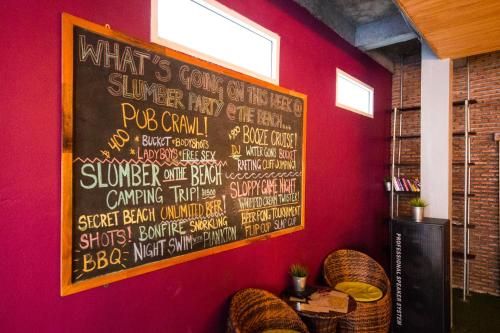 WHAT'S GOING ON THIS WEEK @
SLUMBER PARTY @ THE BEACH...
PUB CRAWL!
$400
* BUCKET * BODYSHOTS
* LADYBOYS * FREE SEX
SLUMBER ON THE BEACH
CAMPING TRIP!
SECRET BEACH UNLIMITED BEER!
SHOTS! BONFIRE SNORKLING
BBQ NIGHT SWIM WITH PLANKTON
BOOZE CRUISE!
DJ WATER GUNS BUCKET
RAFTING CLIFFJUMPING!
SLOPPY GAME NIGHT
WHIPPED CREAM TWISTER!
BEER PONG TOURNAMENT
FLIP CUP SLAP CUP
PROFESSIONAL SPEAKER SYSTEM